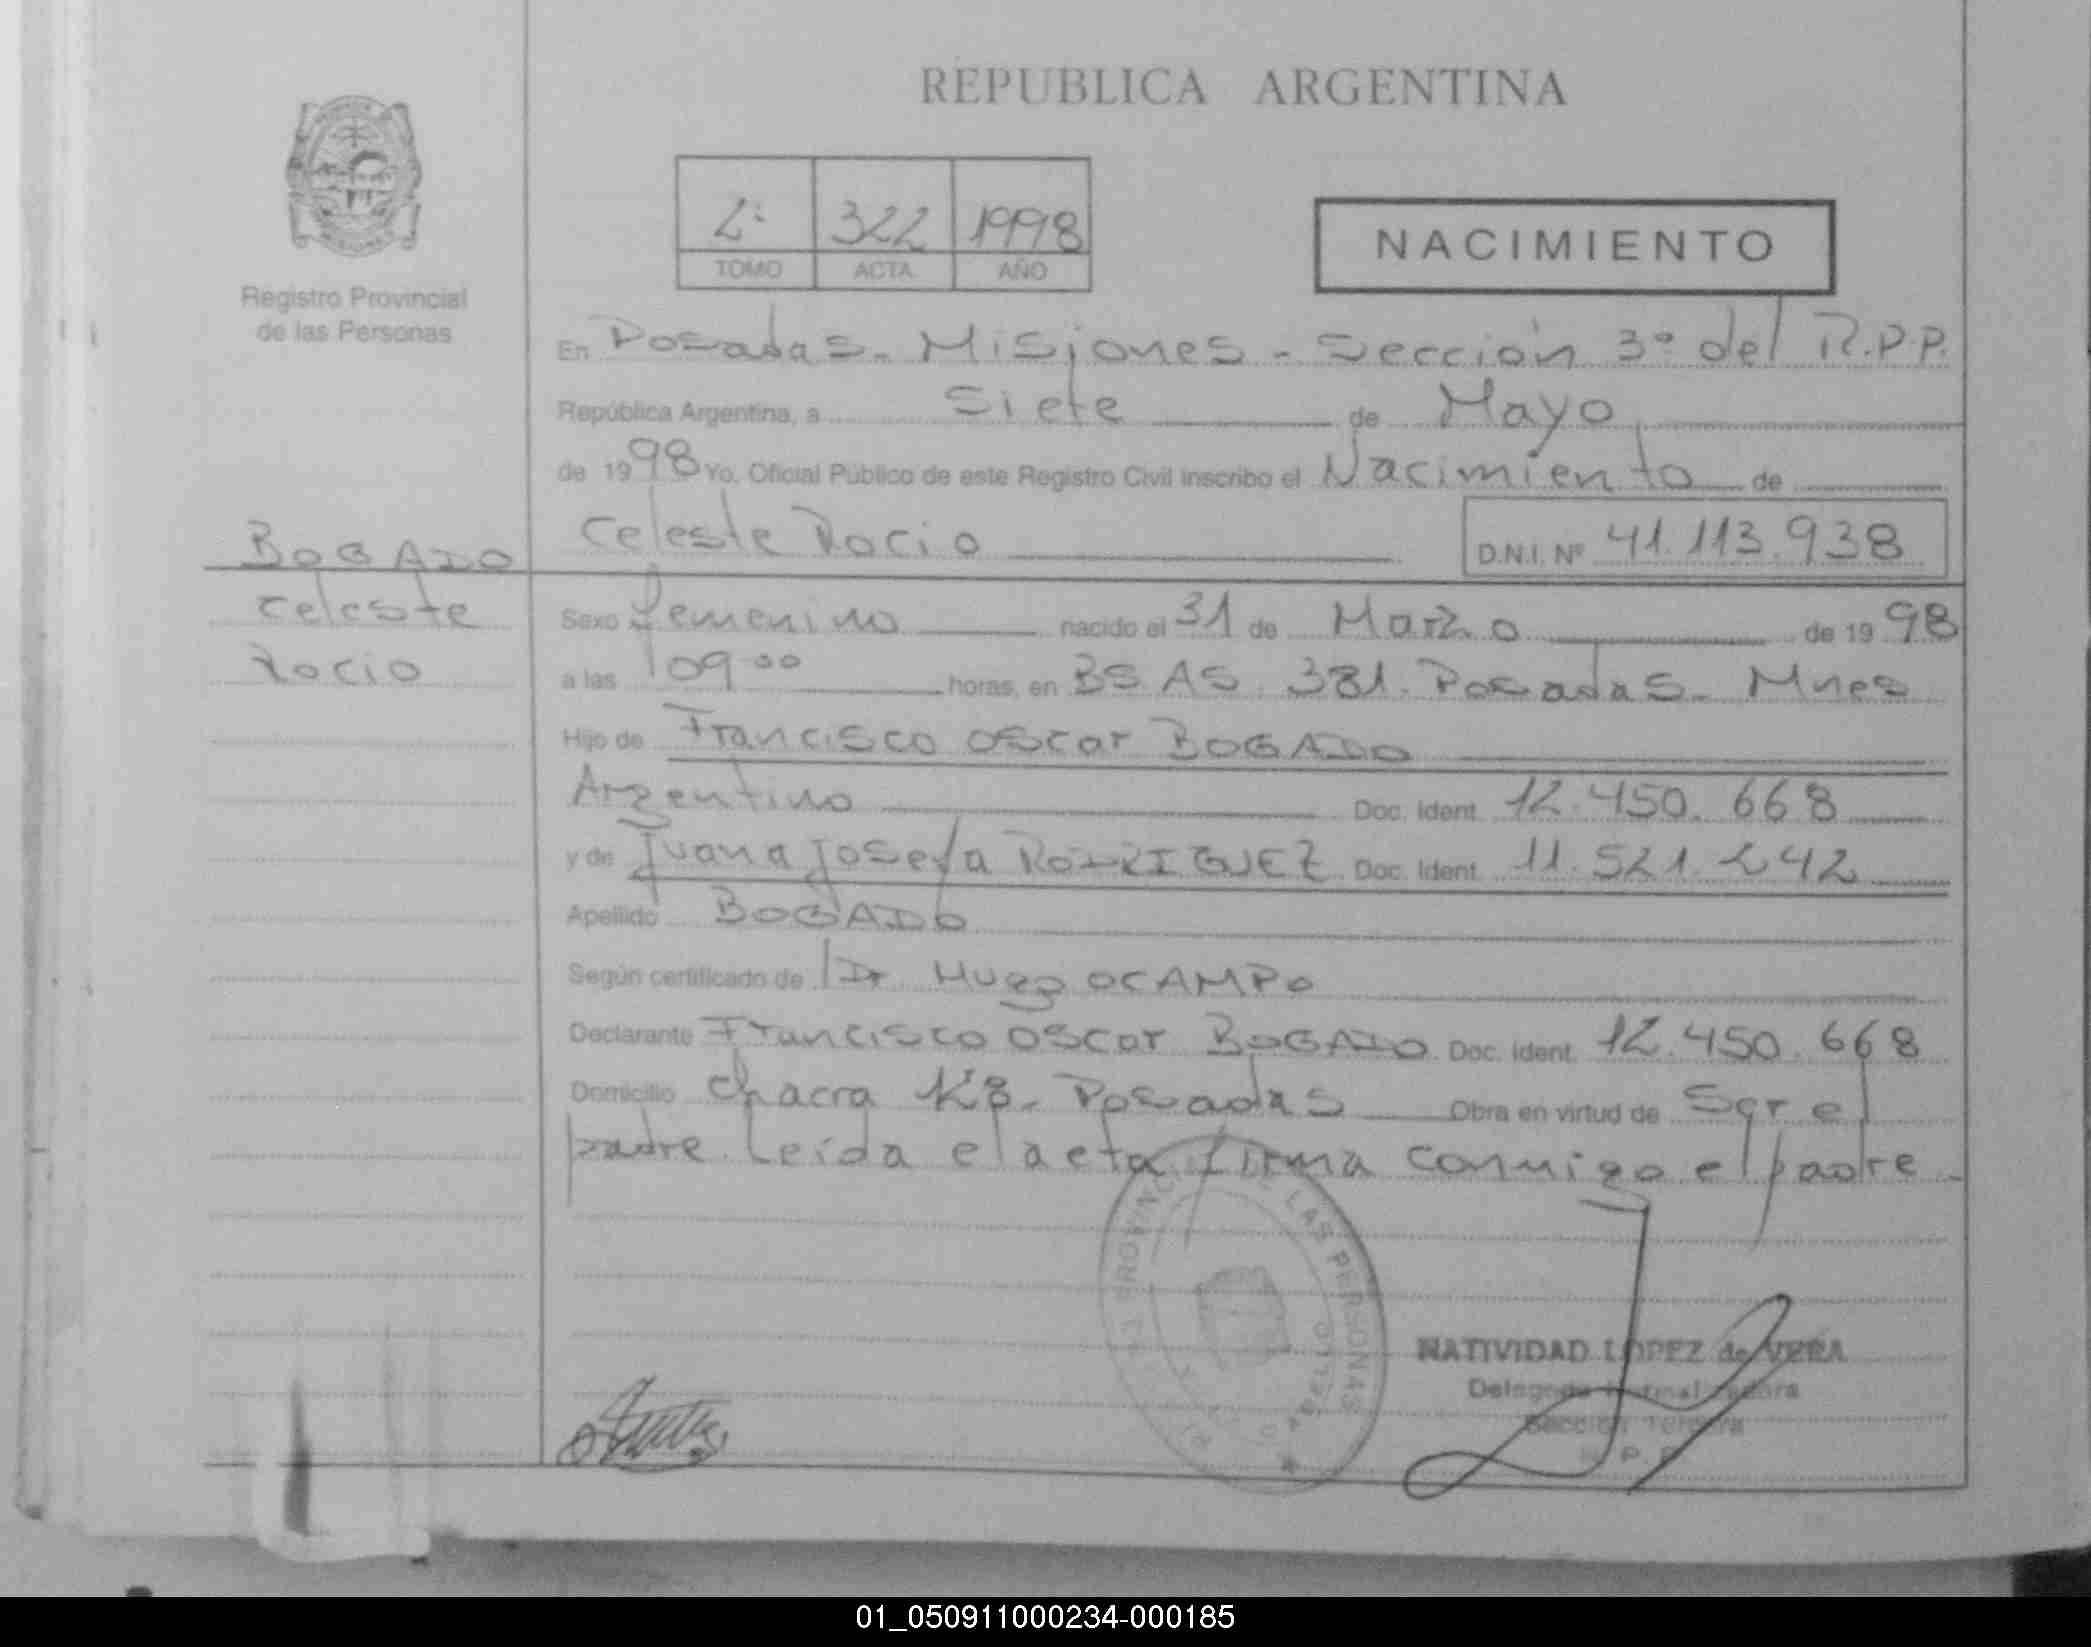 REPUBLICA ARGENTINA
2º 322 1998
TOMO ACTA AÑO
NACIMIENTO
Registro Provincial
de las Personas
En Posadas - Misiones - Sección 3º del R.P.P.
República Argentina, a siete de Mayo
de 1998 Yo, Oficial Público de este Registro Civil inscribo el Nacimiento de
BOGADO
Celeste
Rocio
Celeste Rocio D.N.I. Nº 41.113.938
Sexo femenino nacido el 31 de Marzo de 1998
a las 09 00 horas, en BS AS 381. Posadas - Mnes
Hijo de Francisco Oscar BOGADO
Argentino Doc. Ident. 12.450.668
y de Juana Josefa RODRIGUEZ Doc. Ident. 11.521.242
Apellido BOGADO
Según certificado de Dr Hugo OCAMPO
Declarante Francisco Oscar BOGADO Doc. Ident. 12.450.668
Domicilio Chacra Posadas Obra en virtud de Ser el
padre. Leida el acta firma conmigo el padre -
LAS PERSONAS
NATIVIDAD LOPEZ de VERA
Delegada
Sección Tercera
01_050911000234-000185